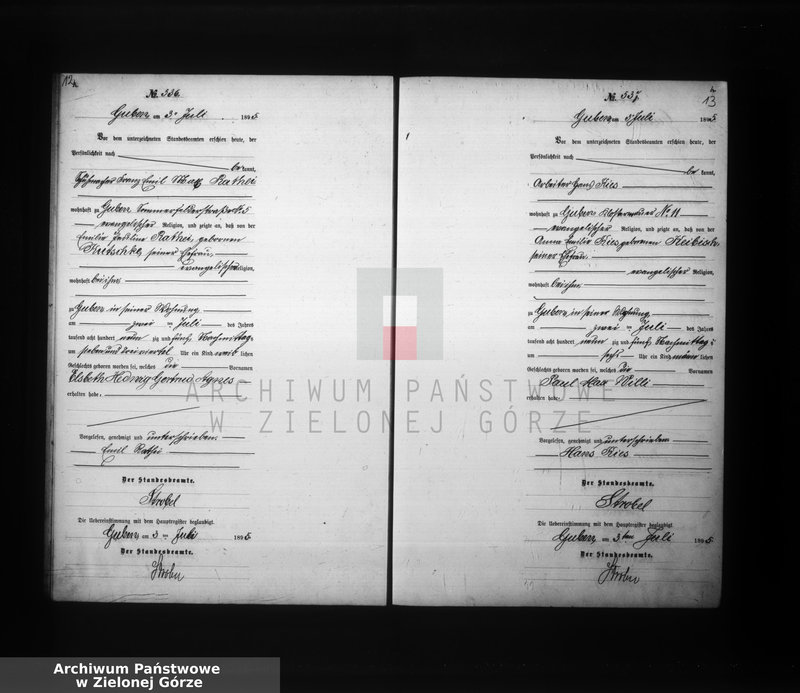 12
No. 336.
Guben am 3. Juli 1895
Vor dem unterzeichneten Standesbeamten erschien heute, der
Persönlichkeit nach
be kannt,
Emil Max
wohnhaft zu Guben
evangelischer Religion, und zeigte an, daß von der
Emilie Pauline geborenen
seiner Ehefrau,
evangelischer Religion,
wohnhaft bei ihm
zu Guben in seiner Wohnung
am zwei ten Juli des Jahres
tausend acht hundert neun zig und fünf, Nachmittags
um sieben und drei viertel Uhr ein Kind weib lichen
Geschlechts geboren worden sei, welches die Vornamen
Elsbeth Hedwig Gertrud Agnes
erhalten habe.
Vorgelesen, genehmigt und unterschrieben.
Emil
Der Standesbeamte.
Strobel
Die Uebereinstimmung mit dem Hauptregister beglaubigt
Guben, am 3 ten Juli 1895
Der Standesbeamte.
Strobel
13
No. 337.
Guben am 3 Juli 1895
Vor dem unterzeichneten Standesbeamten erschien heute, der
Persönlichkeit nach
be kannt,
Arbeiter Hans Kies
wohnhaft zu Guben No 11
evangelischer Religion, und zeigte an, daß von der
Anna Emilie Kies, geborenen
seiner Ehefrau
evangelischer Religion,
wohnhaft bei ihm
zu Guben in seiner Wohnung
am zwei ten Juli des Jahres
tausend acht hundert neun zig und fünf, Nachmittags
um sechs Uhr ein Kind männ lichen
Geschlechts geboren worden sei, welches die Vornamen
Paul Max Willi
erhalten habe.
Vorgelesen, genehmigt und unterschrieben
Hans Kies
Der Standesbeamte.
Strobel
Die Uebereinstimmung mit dem Hauptregister beglaubigt
Guben, am 3ten Juli 1895
Der Standesbeamte.
Strobel
ARCHIWUM PAŃSTWOWE
W ZIELONEJ GÓRZE
Archiwum Państwowe
w Zielonej Górze